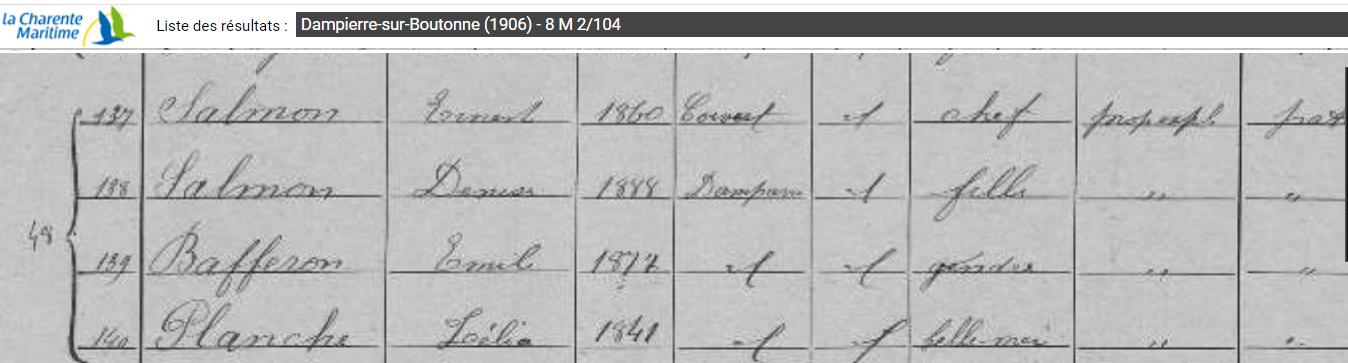 la Charente Maritime Liste des résultats : Dampierre-sur-Boutonne (1906) - 8 M 2/104
137 Salmon Ernest 1860 Coivert d chef prop expl
138 Salmon Denise 1888 Dampierre d fille "  "
48
139 Bafferon Emile 1877 d d gendre " "
140 Planche Zélia 1841 d d belle-mère " "